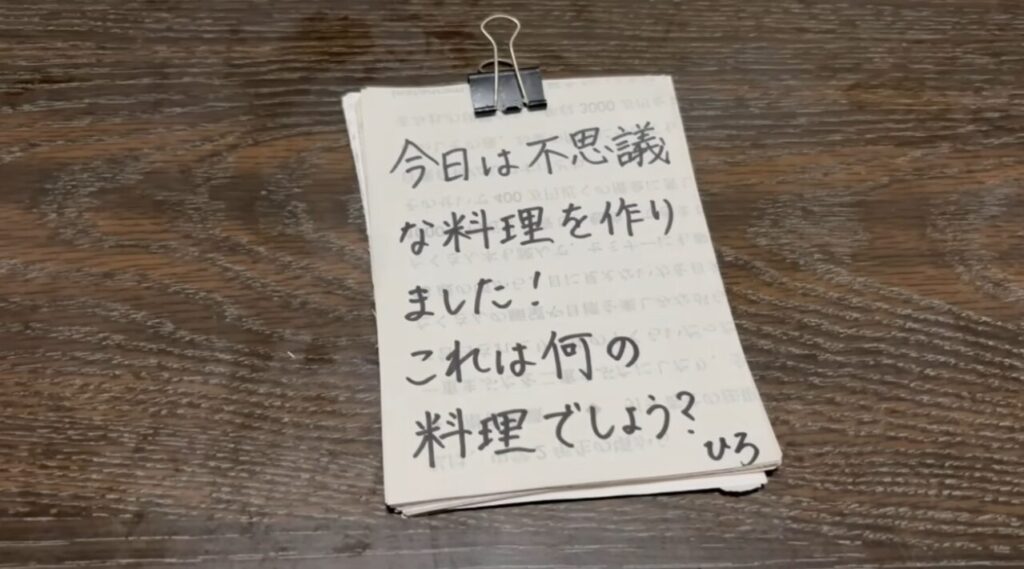 今日は不思議
な料理を作り
ました!
これは何の
料理でしょう?
ひろ